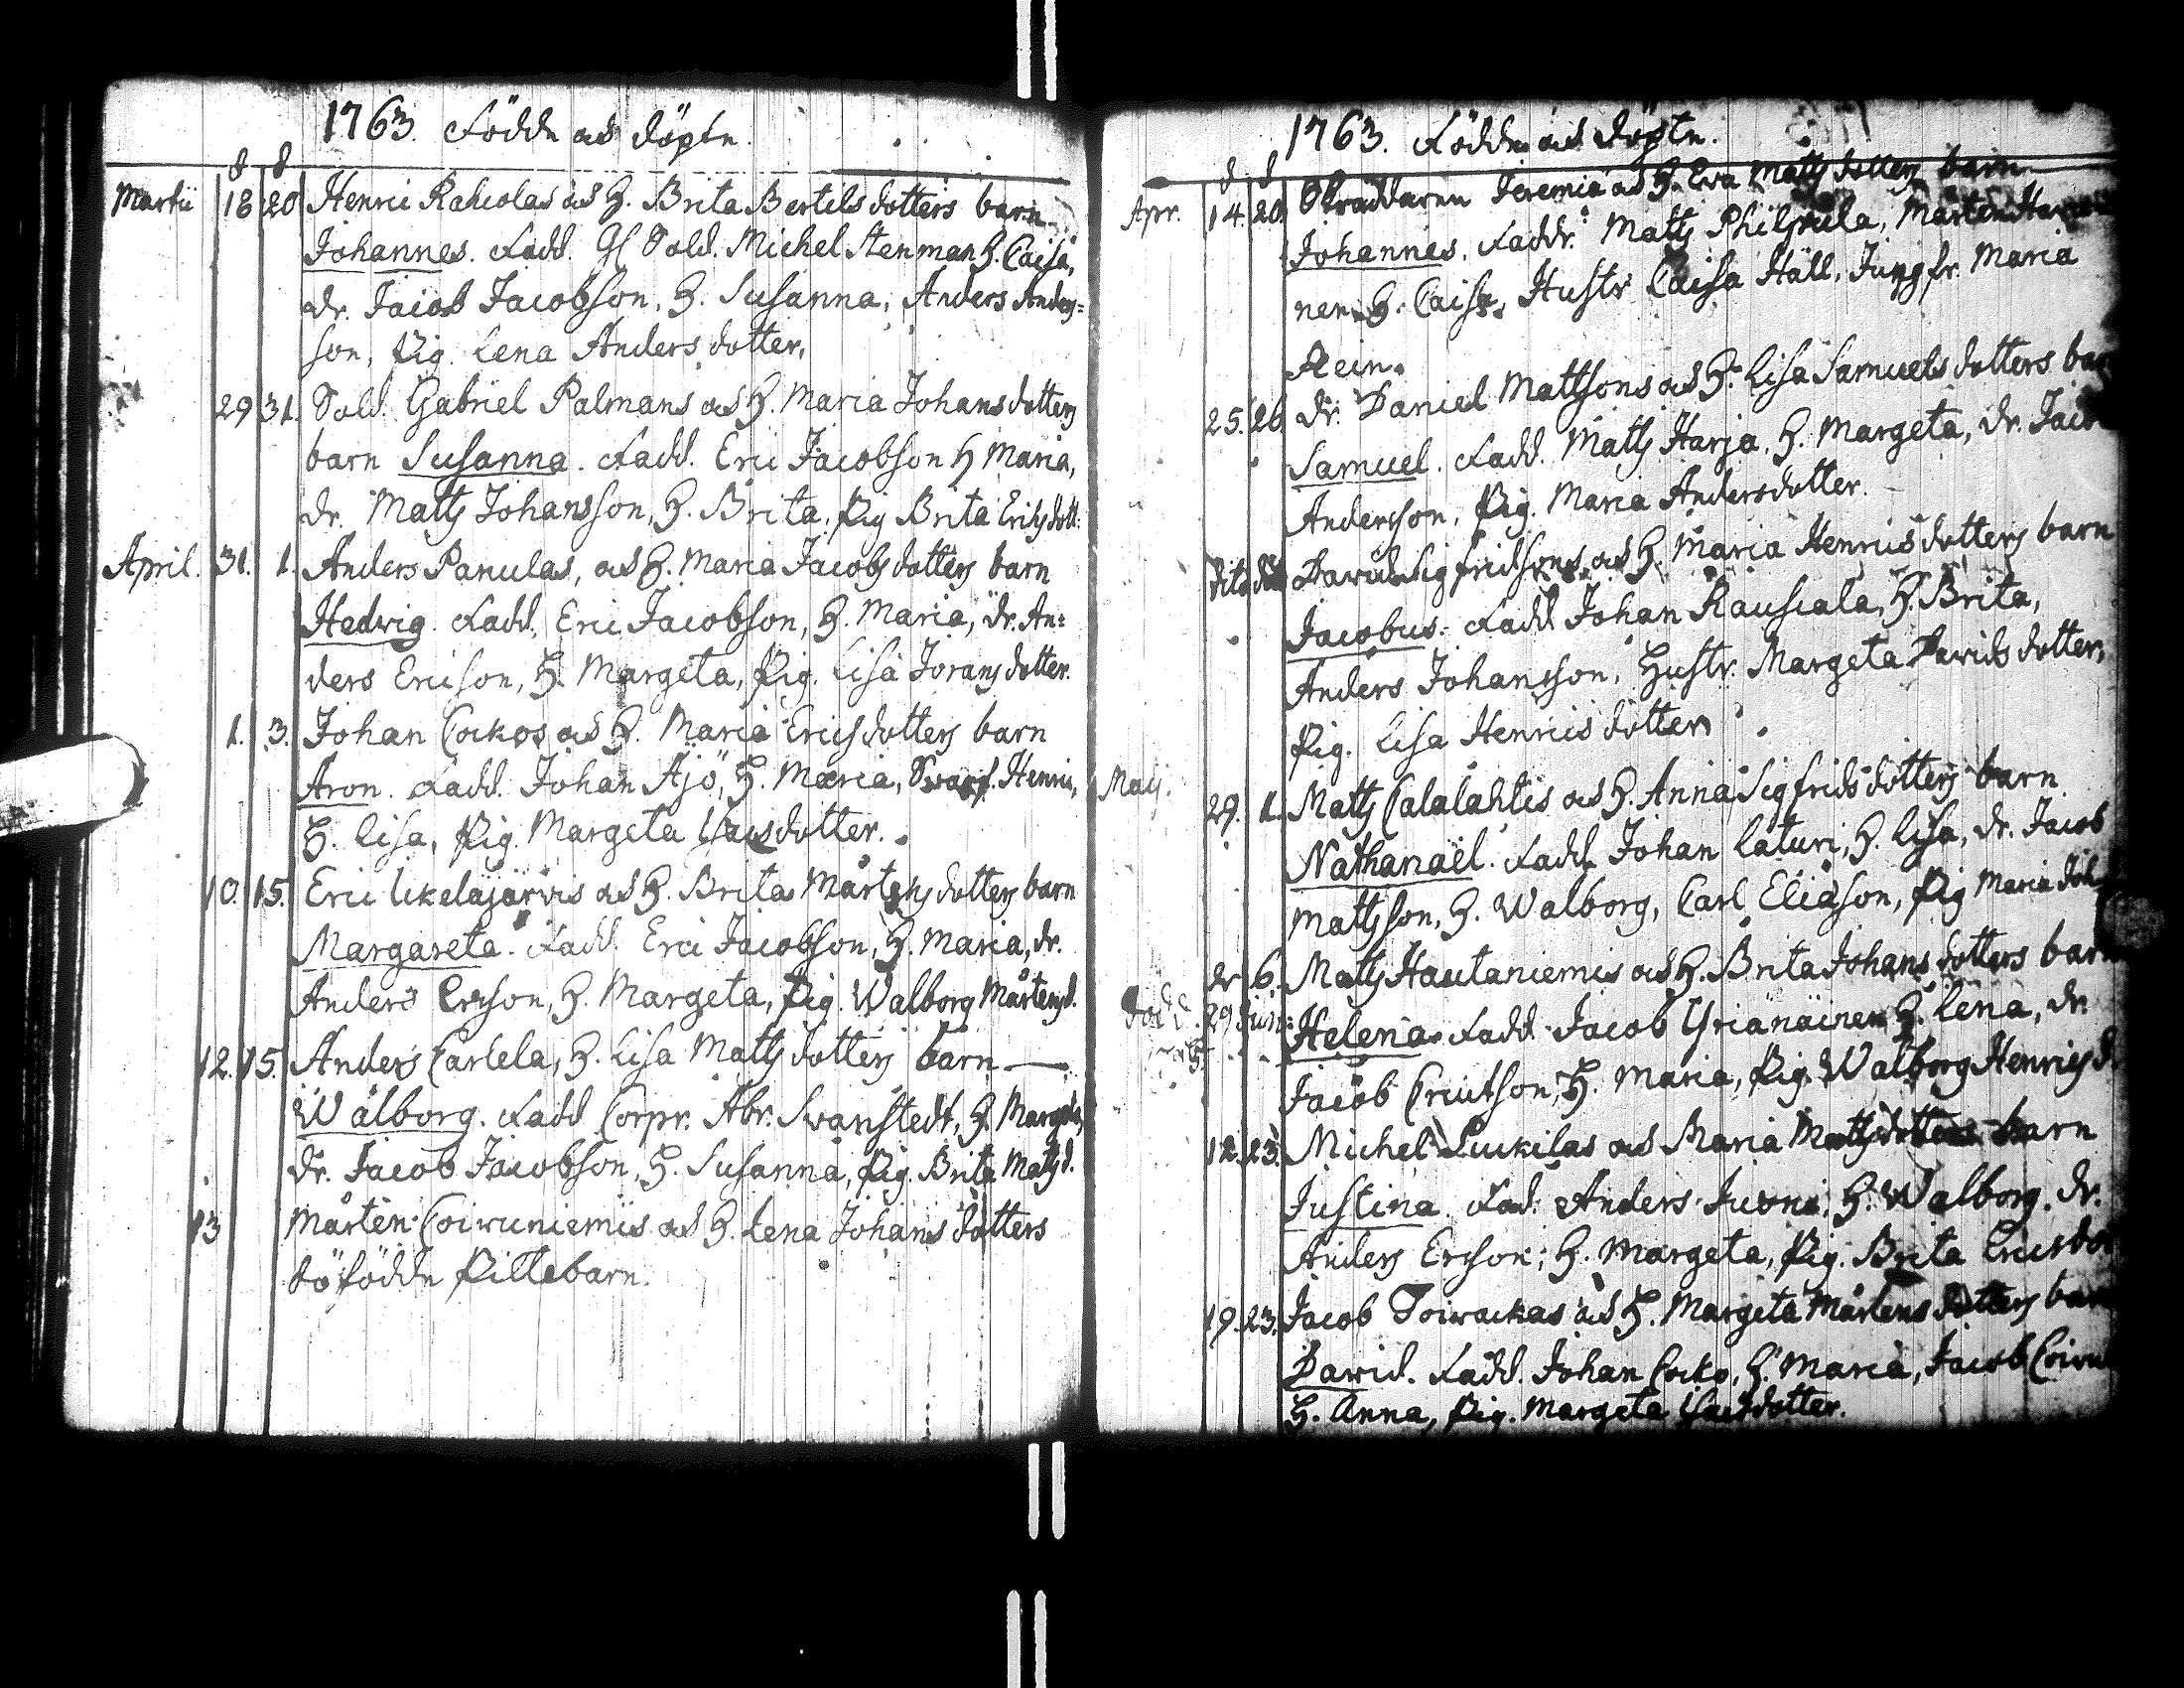 1763. Födde och döpte.
d d
Martii 18 20 Henric Raholas och H. Brita Bertels dotters barn
Johannes. Fadd. Gl Sold. Michel Stenman H. Caisa,
dr. Jacob Jacobson, H. Susanna, Anders Anders=
son, Pig. Lena Anders dotter.
29 31. Sold. Gabriel Palmans och H. Maria Johans dotters
barn Susanna. Fadd. Eric Jacobson H Maria,
dr. Matts Johansson, H. Brita, Pig Brita Erics dott:
April. 31. 1. Anders Panulas, och H. Maria Jacobs dotters barn
Hedwig. Fadd. Eric Jacobson, H. Maria, dr. An=
ders Ericson, H. Margeta, Pig. Lisa Jorans dotter.
1. 3. Johan Cockos och H. Maria Erics dotters barn
Aron. Fadd. Johan Ajö, H. Maria, Henric,
H. Lisa, Pig. Margeta Isacsdotter.
10. 15. Eric Ukelajärwis och H. Brita Mårtens dotters barn
Margareta. Fadd. Eric Jacobson, H. Maria, dr.
Anders Ericson, H. Margeta, Pig. Walborg Mårtensd.
12. 15. Anders Carlela, H. Lisa Matts dotters barn
Walborg. Fadd Corpr. Abr. Swanstedt, H. Margeta,
dr. Jacob Jacobson, H. Susanna, Pig. Brita Matsd.
13 Mårten Coiwuniemis och H. Lena Johans dotters
döfödde Pillebarn.
1763. Födde och döpte.
d d
Apr. 14. 20. Skräddaren Jeremia och H. Ewa Matts dotters barn
Johannes. Faddr. Matts Philpula, Mårten
nen H. Caisa, Hustr Caisa Häll, Jungfr. Maria
Rein.
25. 26. dr. Daniel Mattsons och H. Lisa Samuels dotters
Samuel. Fadd. Matts Harja, H. Margeta, dr. Jacob
Andersson, Pig. Maria Andersdotter.
dito Dawid Sigfridsons och H. Maria Henrics dotters barn
Jacobus. Fadd Johan Rauscala, H. Brita,
Anders Johansson, Hustr. Margeta Dawids dotter,
Pig. Lisa Henrics dotter
Maij. 29. 1. Matts Calalahtis och H. Anna Sigfrids dotters barn
Nathanaël. Fadd. Johan Laturi, H. Lisa, dr. Jacob
Mattsson, H. Walborg, Carl Eliason, Pig Maria
2 6. Matts Hautaniemis och H. Brita Johans dotters barn
29 Jun: Helena. Fadd. Jacob Yriänäinen H. Lena, dr.
Jacob Cnutson, H. Maria, Pig. Walborg Henrics d.
12. 23. Michel Luckilas och Maria Mattsdotters barn
Justina. Fad: Anders Juoni, H. Walborg. dr.
Anders Ericson, H. Margeta, Pig. Brita
19. 23. Jacob Toiwackas och H. Margeta Mårtens dotters
Dawid. Fadd. Johan Cocko, H. Maria, Jacob
H. Anna, Pig. Margeta Isacsdotter.